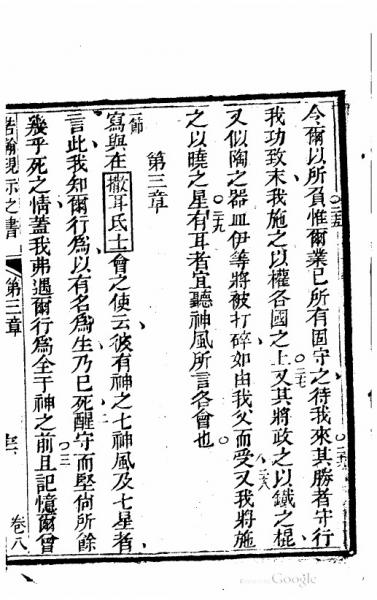 今爾以所負惟爾業已所有固守之待我來其勝者守行
我功致末我施之以權各國之上又其將政之以鐵之棍
又似陶之器皿伊等將被打碎如由我父而受又我將施
之以曉之星有耳者宜聽神風所言各會也
第三章
節
寫與在撒耳氏士會之使云彼有神之七神風及七星者
言此我知爾行為以有名為生乃已死醒守而堅倘所餘
幾乎死之情蓋我弗遇爾行為全于神之前且記憶爾曾
若翰現示之書
第三章
卷八
Google